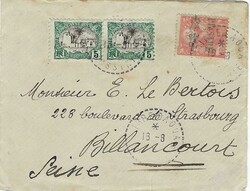 5 5
Monsieur E. Le Bertois
223 boulevard de Strasbourg
Billancourt
Seine